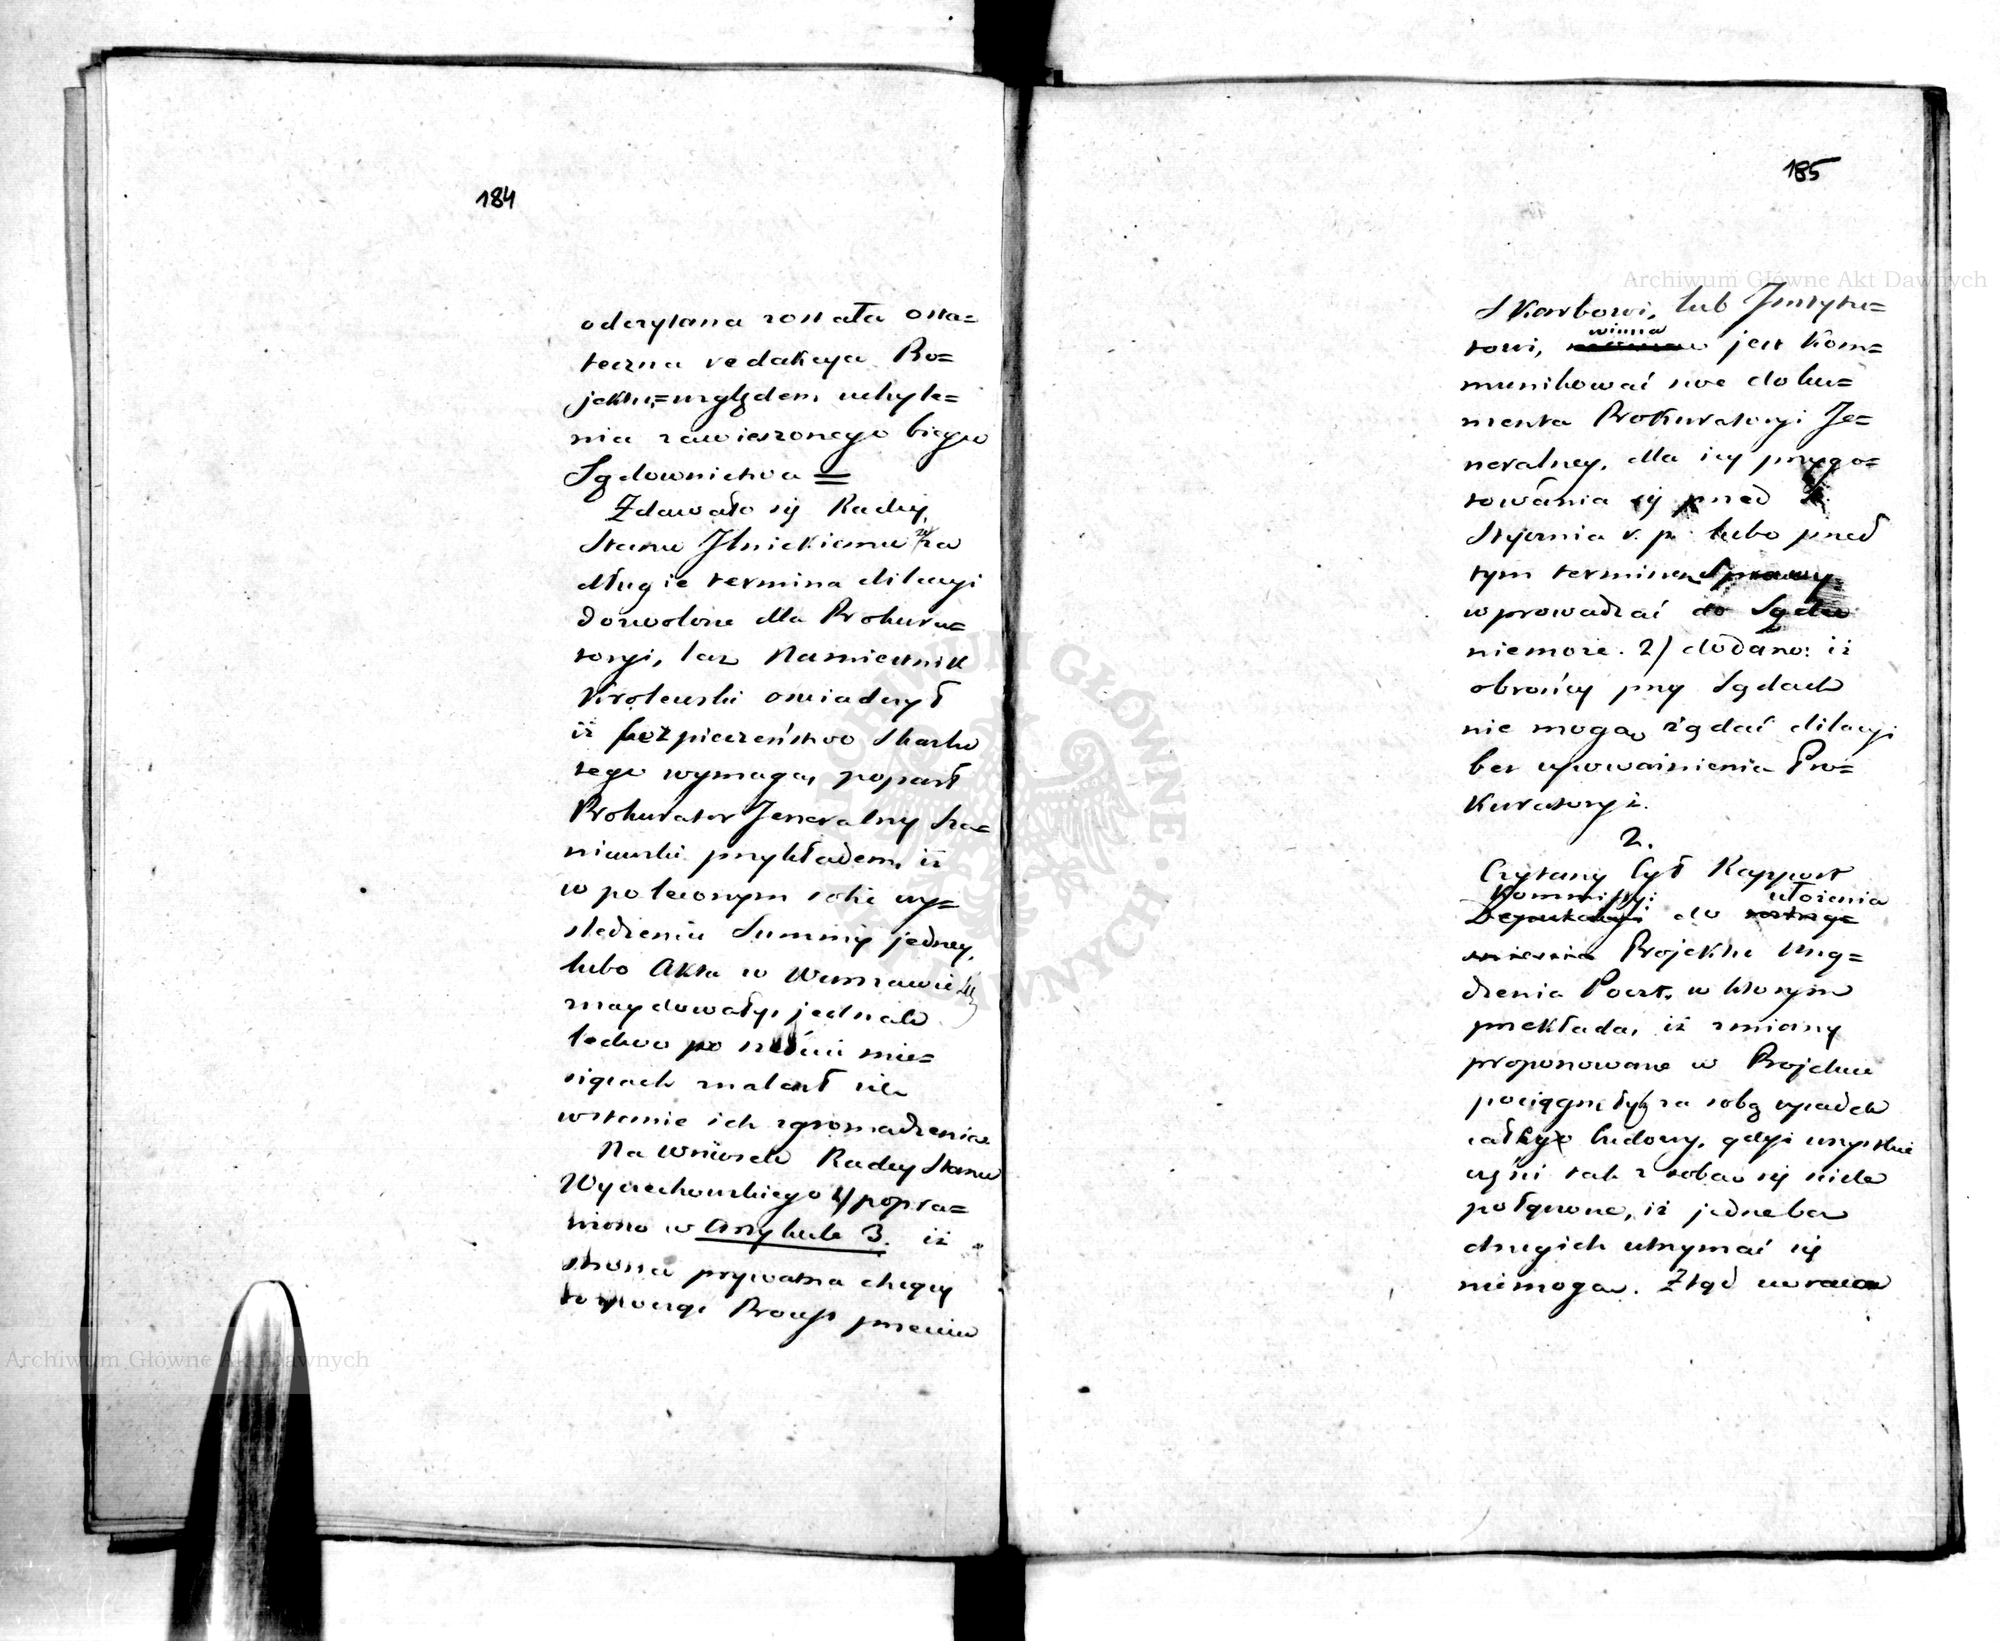 184
odczytana została osta=
teczna redakcya Pro=
jektu, względem uchyle=
nia zawieszonego biegu
Sądownictwa =
Zdawało się Radcy
Stanu Ilnickiemu za
długie termina dilacyi
dozwolone dla Prokura=
toryi, lecz Namiestnik
Królewski oswiadczył
iż bezpieczeństwo Skarbu
tego wymaga, poparł
Prokurator Jeneralny Sza=
niawski przykładem, iż
w poleconym sobie wy=
śledzeniu Summy jedney,
lubo Akta w Warszawie
znaydowały, jednak
ledwo po sześciu mie=
siącach znalazł się
wstanie ich zgromadzenia
Na wniosek Radcy Stanu
Woyciechowskiego 1/ popra=
wiono w Artykule 3. iż
strona prywatna chcący
rozpocząć Process przeciw
185
Skarbowi, lub Instytu=
winna
towi, jest kom=
munikować swe doku=
menta Prokuratoryi Je=
neralney, dla iey przygo=
towania się przed
Stycznia r. p. lubo przed
tym terminem Sprawy
wprowadzać do Sądu
niemoże. 2/ dodano: iż
obrońcy przy Sądach
nie mogą żądać dilacyi
bez upoważnienia Pro=
kuratoryi.
2.
Czytany był Rapport
Kommissyi ułożenia
Deputacyi do roztrzą=
śnienia Projektu Urzą=
dzenia Poczt, w którym
przekłada, iż zmiany
proponowane w Projekcie
pociągnęłyby za sobą upadek
całkiey budowy, gdyż wszystkie
części tak z sobą są ściśle
połączone, iż jedne bez
drugich utrzymać się
niemogą. Ztąd uważa
Archiwum Główne Akt Dawnych
Archiwum Główne Akt Dawnych
ARCHIWUM GŁÓWNE AKT DAWNYCH